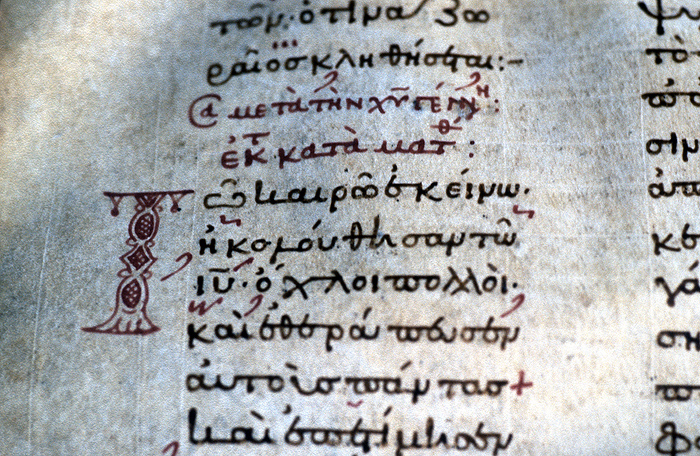 τῶν· ὅτι ναζω
ραῖος κληθήσεται:–
μετὰ τὴν χ̅υ̅ γέννη:
ἐκ τ κατὰ ματθ:
Τῶ καιρῶ ἐκείνω·
ἠκολούθησαν τῶ
ι̅υ̅· ὄχλοι πολλοὶ·
καὶ ἐθεράπευσεν
αὐτοὺς πάντας+
καὶ ἐπετίμησεν